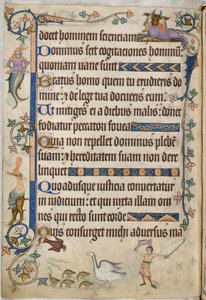 docet hominem scienciam
Dominus scit cogitaciones hominū:
quoniam uane sunt
Beatus homo quem tu erudieris do
mine: ⁊ de lege tua docueris eum.
Ut mitiges ei a diebus malis: donec
fodiatur peccatori fouea
Quia non repellet dominus plebē
suam: ⁊ hereditatem suam non dere
linquet
Quoadusque iusticia conuertatur
in iudicium: et qui iuxta illam om
nes qui recto sunt corde
Quis consurget michi aduersus ma